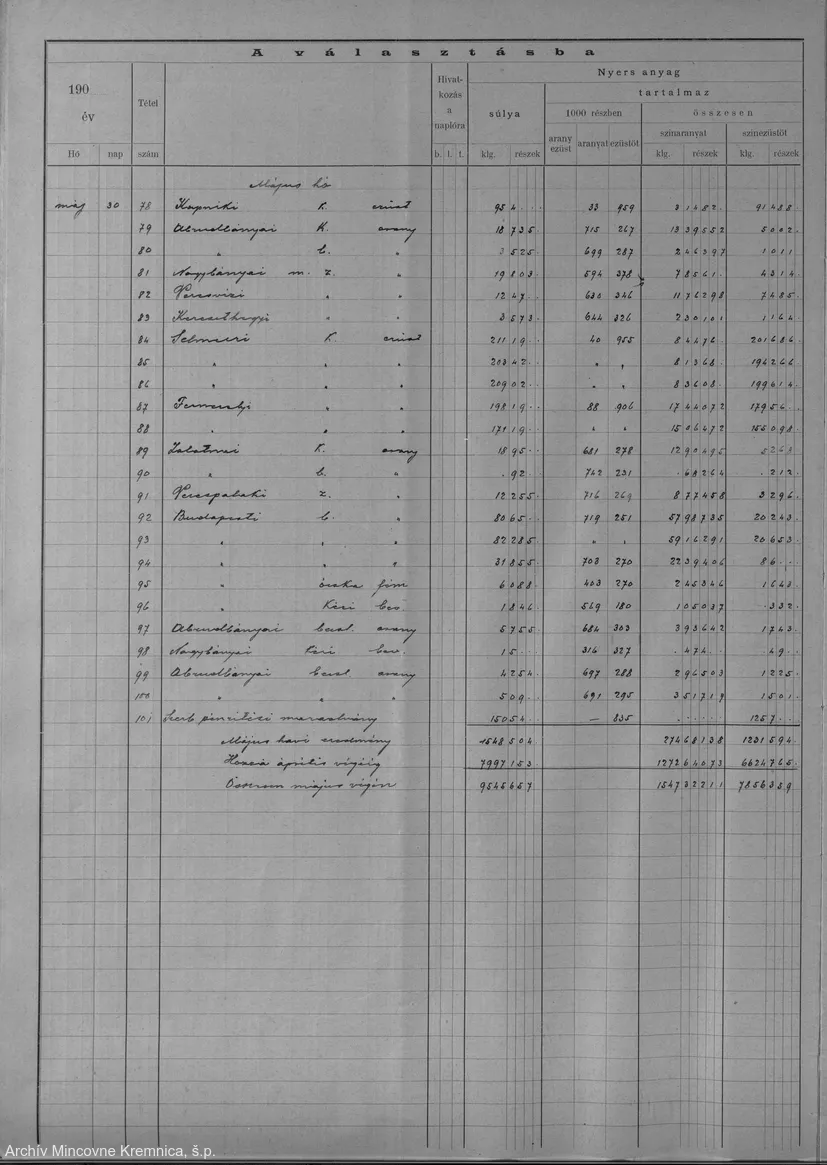 A választásba
190
év
Hó nap
Tétel
szám
Hivat-
kozás
a
naplóra
b. l. t.
Nyers anyag
súlya
klg. részek
tartalmaz
1000 részben
arany
ezüst
aranyat ezüstöt
összesen
színaranyat színezüstöt
klg. részek klg. részek
Május hó
máj 30 78 Kapniki K. ezüst 954 33 959 31482 91488
79 Abrudbányai K. arany 18735 715 267 1339552 5002
80 " b. " 3525 699 287 246397 1011
81 Nagybányai m. z. " 19803 594 378 4314
82 Veresvizi " " 1247 630 346 7485
83 Kereszthegyi " " 3573 644 326 230101 1164
84 Selmeci K. ezüst 21119 40 955 84476 201686
85 " " " 20342 " " 81368 194266
86 " " " 20902 " " 83608 199614
87 Fernezelyi " " 19819 88 906 1744072 17956
88 " " " 17119 " " 1506472 155098
89 Zalatnai K. arany 1895 681 278 1290495 5268
90 " b. " 92 742 231 68264 212
91 Verespataki z. " 12255 716 269 877458 3296
92 Budapesti b. " 8065 719 251 5798735 20243
93 " " " 82285 " " 5916291 20653
94 " " " 31855 703 270 2239406 86
95 " ócska fém 6088 403 270 245346 1643
96 " Kézi bev 1846 569 180 105037 332
97 Abrudbányai beol. arany 5755 684 303 393642 1743
98 Nagybányai Kézi bev. 15 316 327 474 49
99 Abrudbányai beol. arany 4254 697 288 296503 1225
100 " " 509 691 295 351719 1501
101 Szerb pénzverési maradvány 15054 — 835 1257
Május havi eredmény 1548504 27468138 1231594
Hozzá április végéig 7997153 127264073 6624765
Összesen május végén 9545657 154732211 7856359
Archív Mincovne Kremnica, š.p.